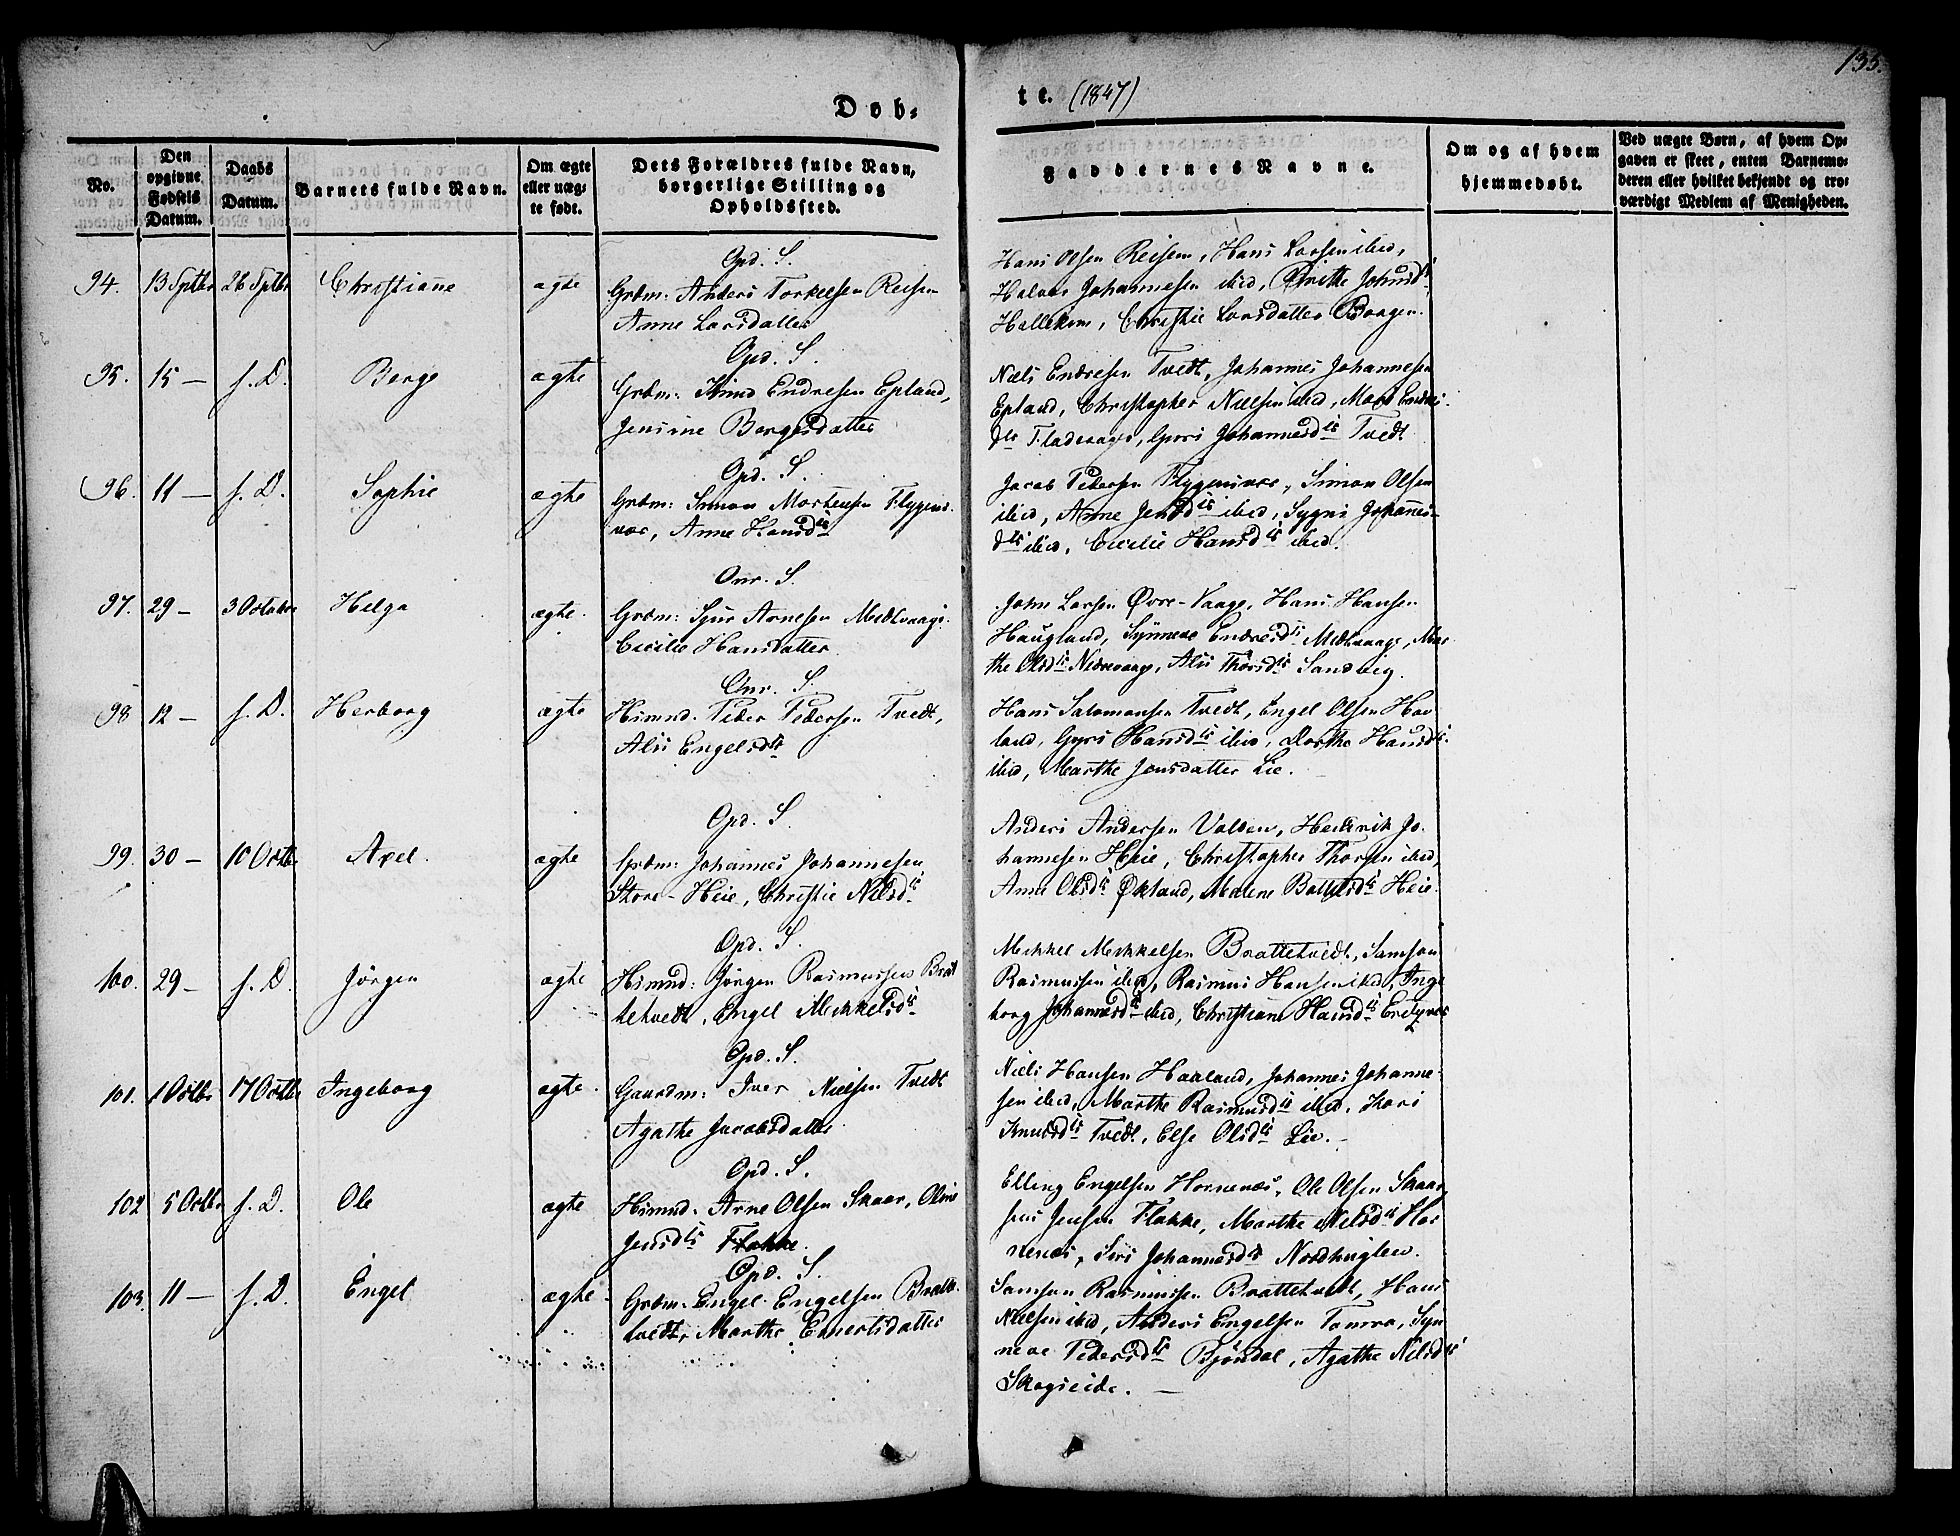 135.
Døb-
te. (1847)
No.
Den opgivne Fødsels Datum.
Daabs Datum.
Barnets fulde Navn.
Om ægte eller uægte født.
Dets Forældres fulde Navn, borgerlige Stilling og Opholdssted.
Faddernes Navne.
Om og af hvem hjemmedøbt.
Ved uægte Børn, af hvem Op-
gaven er skeet, enten Barnemo-
deren eller hvilket bekjendt og tro-
værdigt Medlem af Menigheden.
94. 13 Sptbr 26 Sptbr Christiane ægte
Opd. S.
Grdm: Anders Torkelsen Reisen
Anne Larsdatter
Hans Olsen Reisen, Hans Larsen ibid,
Johannesen ibid, Brithe
Christie Larsdatter Borgen.
95. 15 — s. D. Berge ægte
Opd. S.
Grdm: Knud Endresen Epland,
Jensine Bergesdatter
Niels Endresen Tvedt, Johannes Johannesen
Epland, Christopher Nielsen ibid,
dtr Johannesdtr Tvedt
96. 11 — s. D. Sophie ægte
Opd. S.
Grdm: Simon Mortensen Flygens-
vær, Anne Hansdtr
Jacob Pedersen Flygensvær, Simon Olsen
ibid, Anne Jensdtr ibid, Sygni Johannes-
dtr ibid, Cecilie Hansdtr ibid.
97. 29 — 3 October Helga ægte
Onr. S.
Grdm: Sjur Arnesen Medhvaage
Cecilie Hansdatter
John Larsen Øvre-Vaage, Hans Hansen
Haugland, Synneve Endresdtr Medhvaage, Mar-
the Olsdtr Nedrevaag, Alis Thorsdtr Sandvig.
98 12 — s. D. Herborg ægte
Onr. S.
Hsmnd: Peder Pedersen Tvedt,
Alis Engelsdtr
Hans Salomonsen Tvedt, Engel Olsen Hov-
land, Gyri Hansdtr ibid, Dorthe Hansdtr
ibid, Marthe Jensdatter Lie.
99. 30 — 10 Octbr Axel. ægte
Opd. S.
Grdm: Johannes Johannesen
Store-Heie, Christie Nilsdtr
Anders Andersen Valden, Hendrik Jo-
hannesen Heie, Christopher Thorsen ibid,
Anne Olsdtr Økland, Malene Heie
100. 29 — s. D. Jörgen ægte
Opd. S.
Hsmnd: Jörgen Rasmussen Brat-
tetvedt, Engel Mikkelsdtr
Mikkel Mikkelsen Brattetvedt, Samson
Rasmussen ibid, Rasmus Hansen ibid, Inge-
borg Johannesdtr ibid, Christiane Hansdtr
101. 1 Octbr 17 Octbr Ingeborg ægte
Opd. S.
Gaardm: Iver Nielsen Tvedt
Agathe Jacobsdatter
Niels Hansen Haaland, Johannes Johanne-
sen ibid, Marthe Rasmusdtr ibid, Kari
Knudsdtr Tvedt, Else Olsdtr Lie. —
102 5 Octbr s. D. Ole ægte
Opd. S.
Hsmnd: Arne Olsen Skaar, Oline
Jensdtr Flakke
Elling Engelsen Hornenæs, Ole Olsen Skaar,
Jens Jensen Flakke, Marthe Nilsdtr Hor-
nenæs, Siri Johannesdtr Nordhuglen.
103. 11 — s. D. Engel ægte
Opd. S.
Grdm. Engel Engelsen Bratte-
tvedt, Marthe Ennertsdatter
Samson Rasmussen Brattetvedt, Hans
Nielsen ibid, Anders Engelsen Samra, Syn-
neve Pedersdtr Bjöndal, Agathe Nilsdtr
Skogseide. —